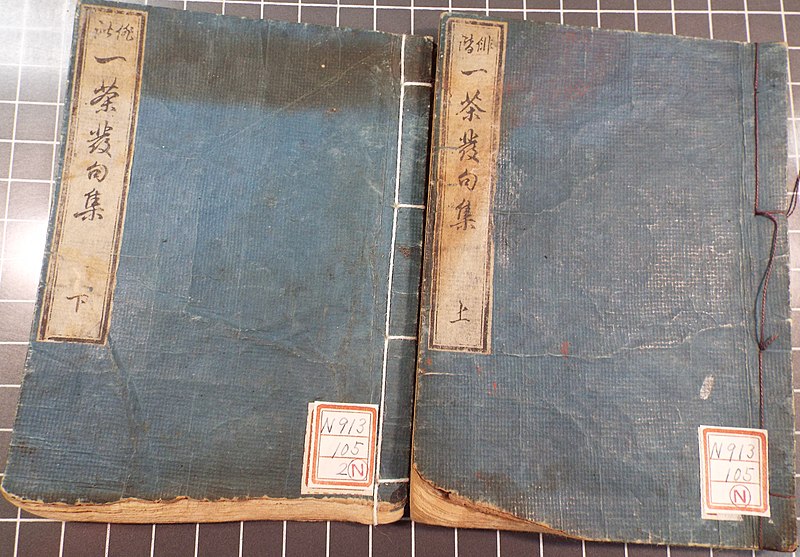 俳諧
一茶發句集
上
N913
105
N
俳諧
一茶發句集
下
N913
105
2 N